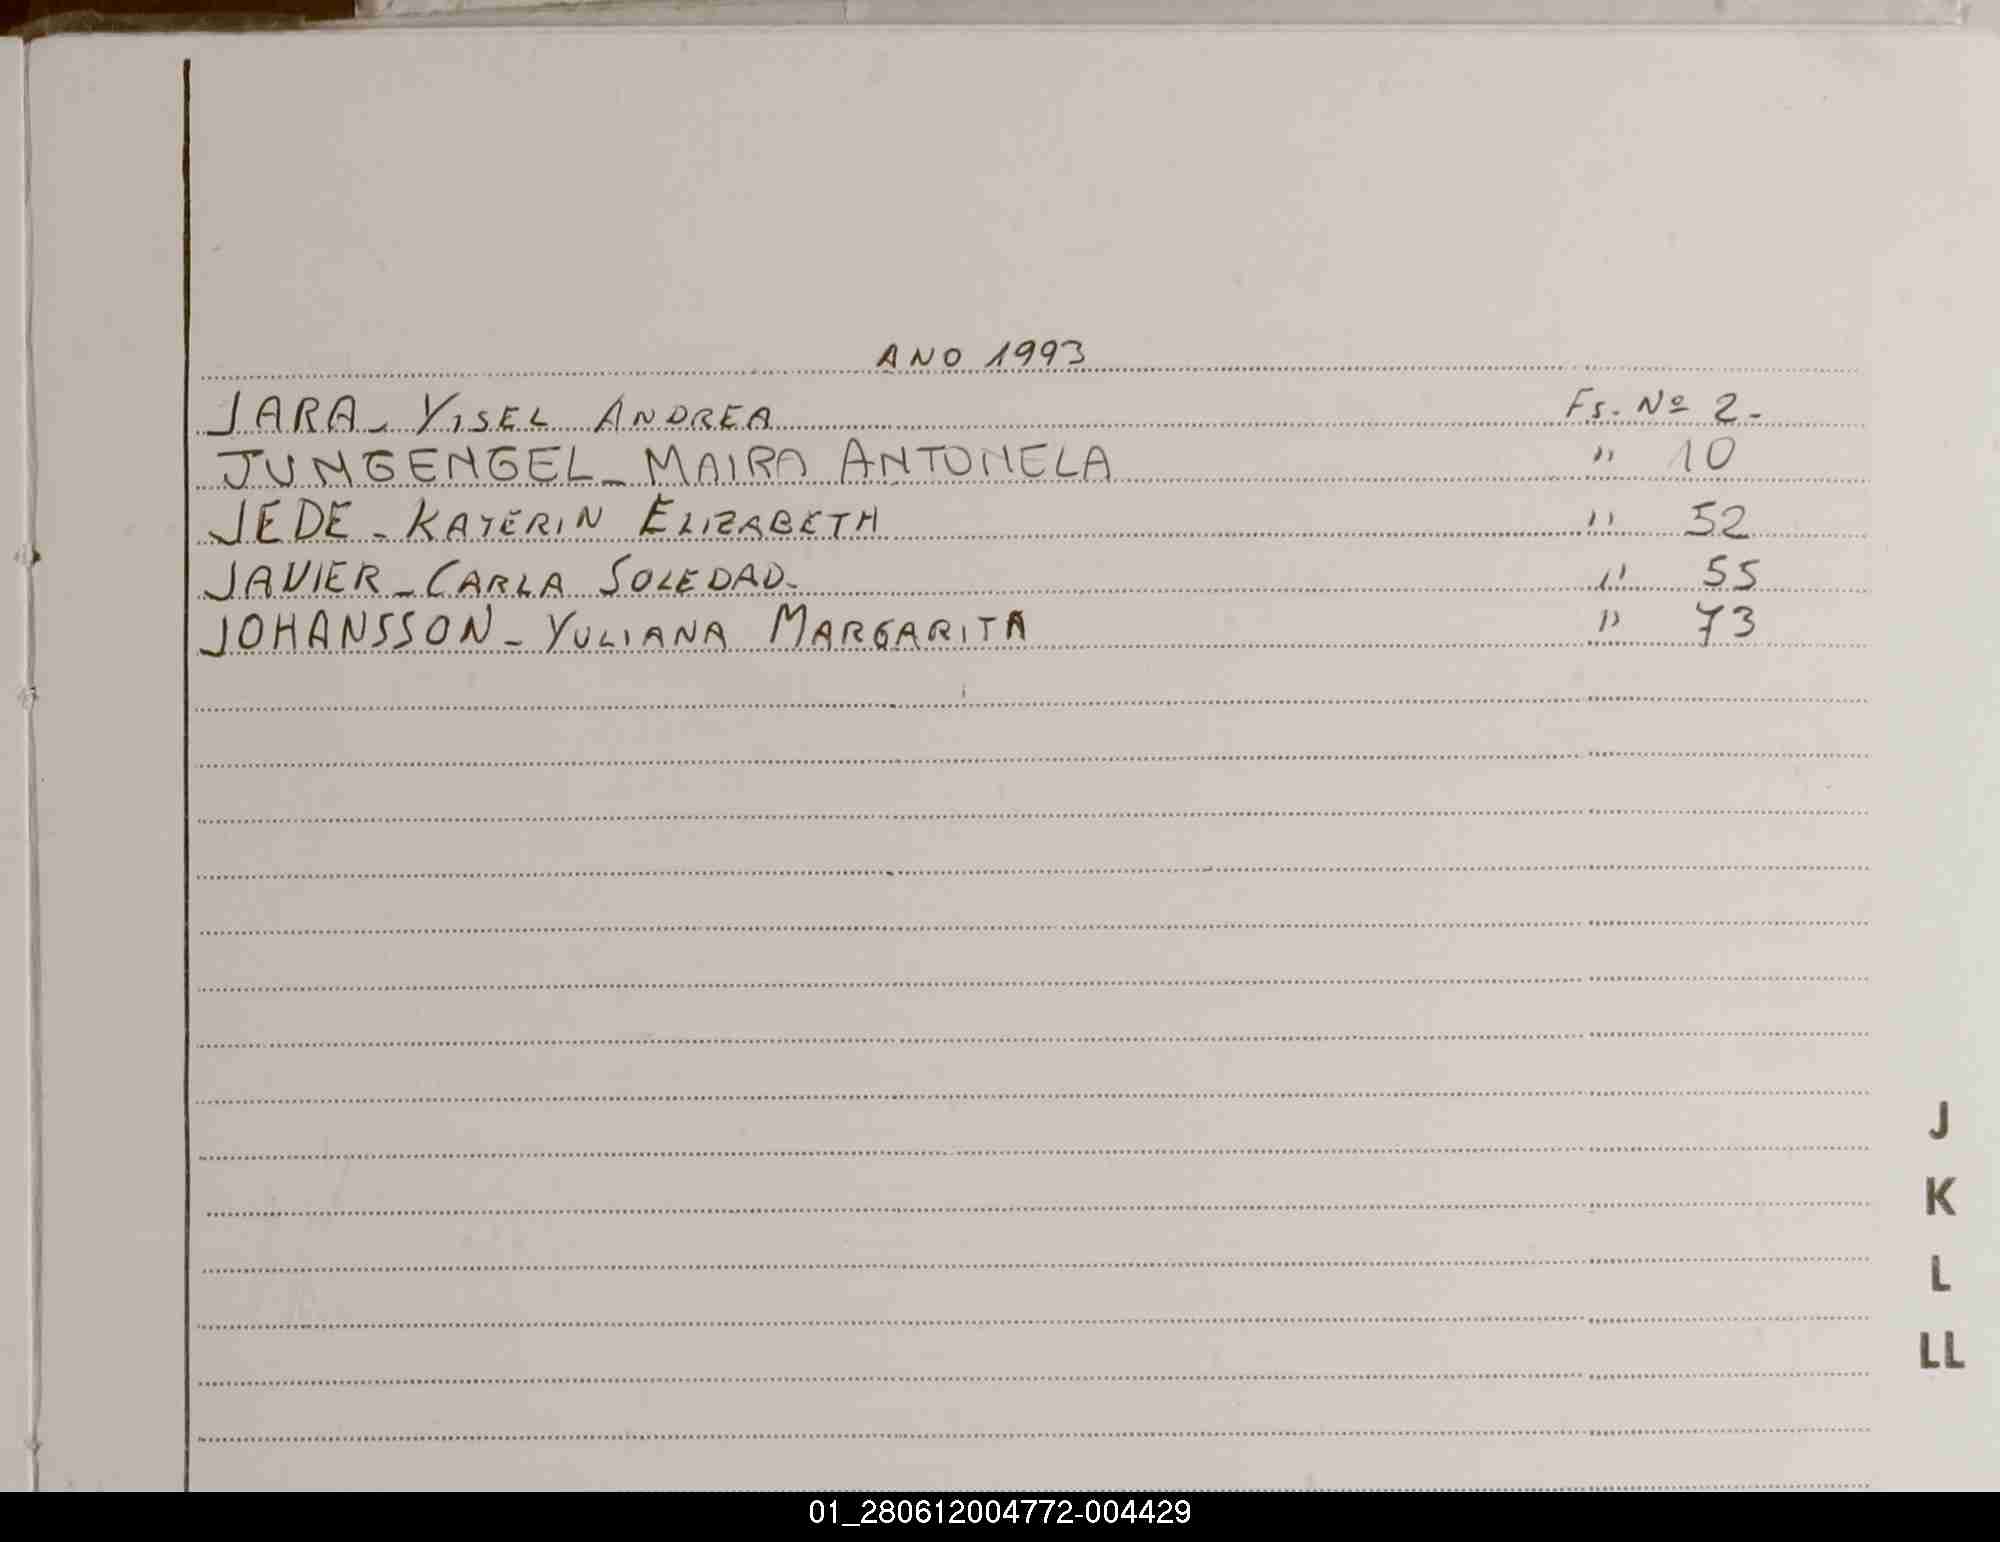 ANO 1993
JARA - YISEL ANDREA Fs. Nº 2.-
JUNGENGEL - MAIRA ANTONELA " 10
JEDE - KATERIN ELIZABETH " 52
JAVIER - CARLA SOLEDAD - " 55
JOHANSSON - YULIANA MARGARITA " 73
J
K
L
LL
01_280612004772-004429